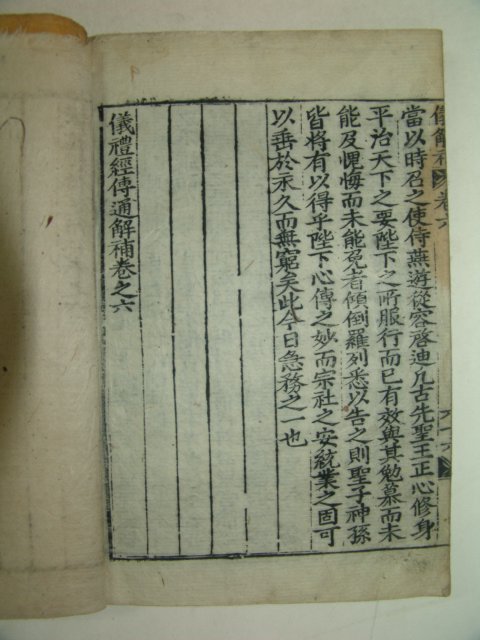 儀解補 卷六
當以時召之使侍燕遊從容啓迪凡古先聖王正心修身
平治天下之要陛下之所服行而已有效與其勉慕而未
能及愧悔而未能免者傾倒羅列悉以告之則聖子神孫
皆將有以得乎陛下心傳之妙而宗社之安統業之固可
以垂於永久而無窮矣此今日急務之一也
儀禮經傳通解補卷之六